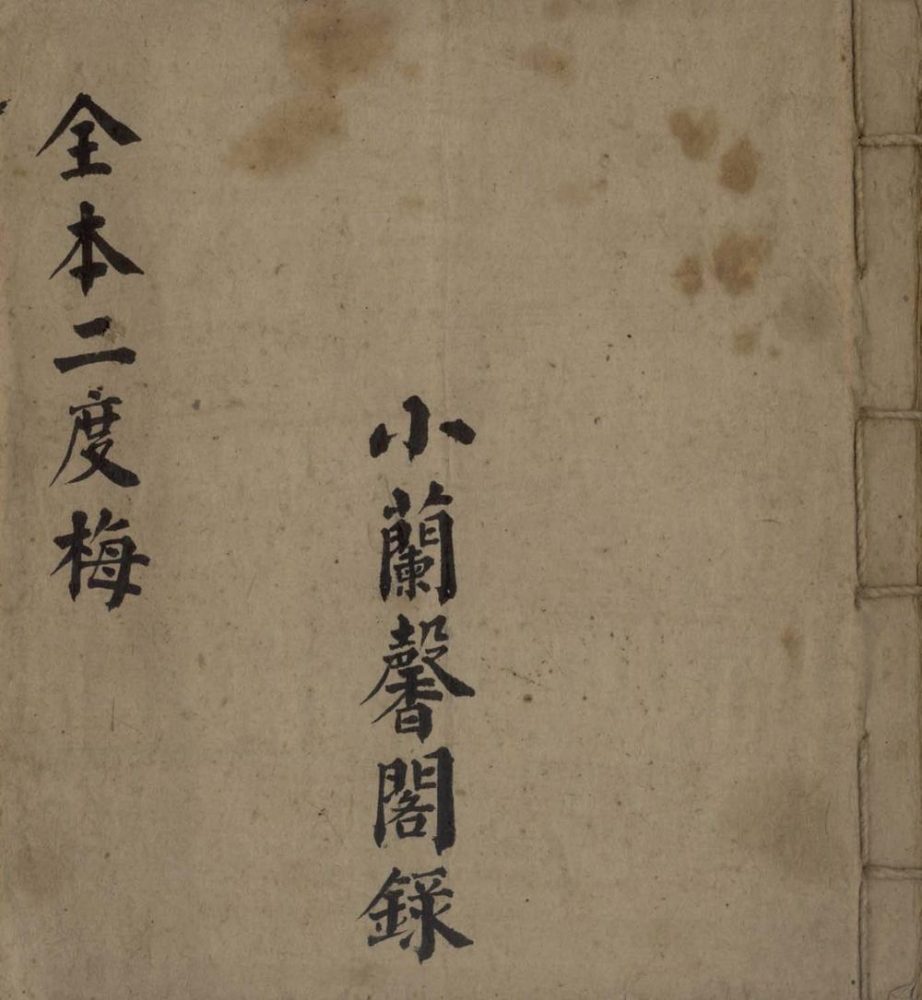 小蘭馨閣錄
全本二度梅